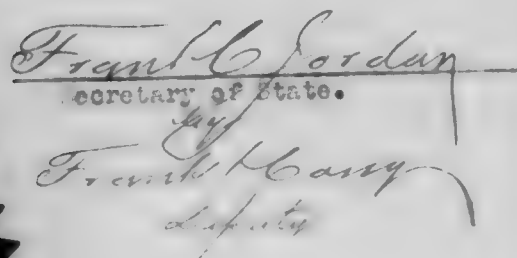 Frank C Jordan
ecretary of State.
By
Frank H Cory
Deputy